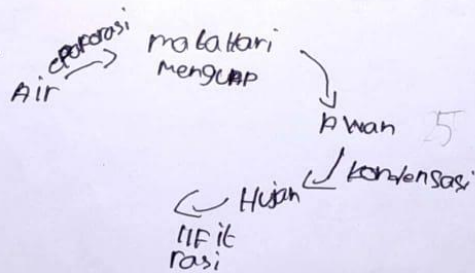 epaporasi
Air
matahari
Menguap
Awan
5
kondensasi
Hujan
IIFit
rasi